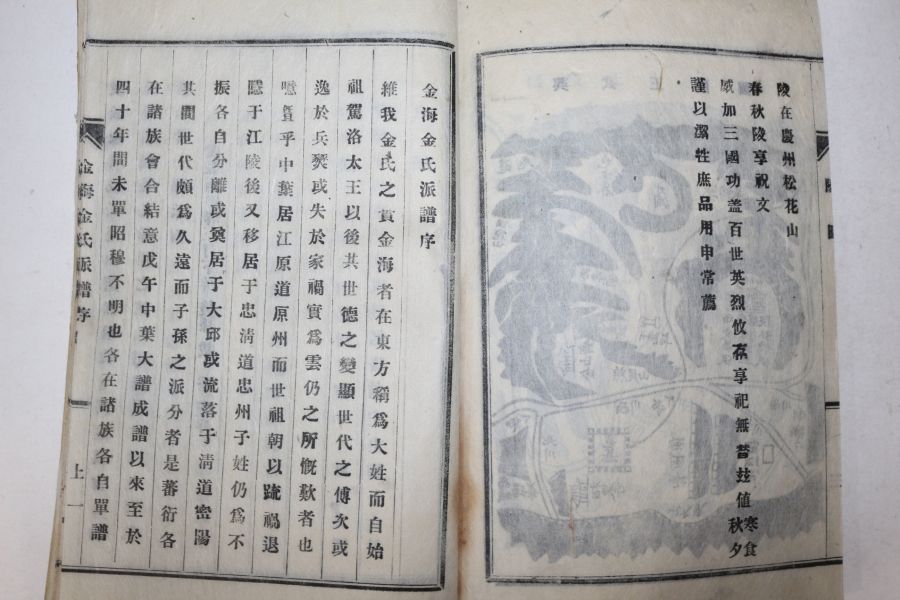 陵在慶州松花山
春秋陵享祝文
威加三國功盖百世英烈攸存享祀無替玆値寒食秋夕
謹以潔牲庶品用申常薦
金海金氏派譜序
維我金氏之貫金海者在東方稱爲大姓而自始
祖駕洛太王以後其世德之變顯世代之傳次或
逸於兵燹或失於家禍實爲雲仍之所慨歎者也
噫曁乎中葉居江原道原州而世祖朝以䟽禍退
隱于江陵後又移居于忠淸道忠州子姓仍爲不
振各自分離或奠居于大邱或流落于淸道密陽
其間世代頗爲久遠而子孫之派分者是蕃衍各
在諸族會合結意戊午中葉大譜成譜以來至於
四十年間未單昭穆不明也各在諸族各自單譜
金海金氏派譜序
上一